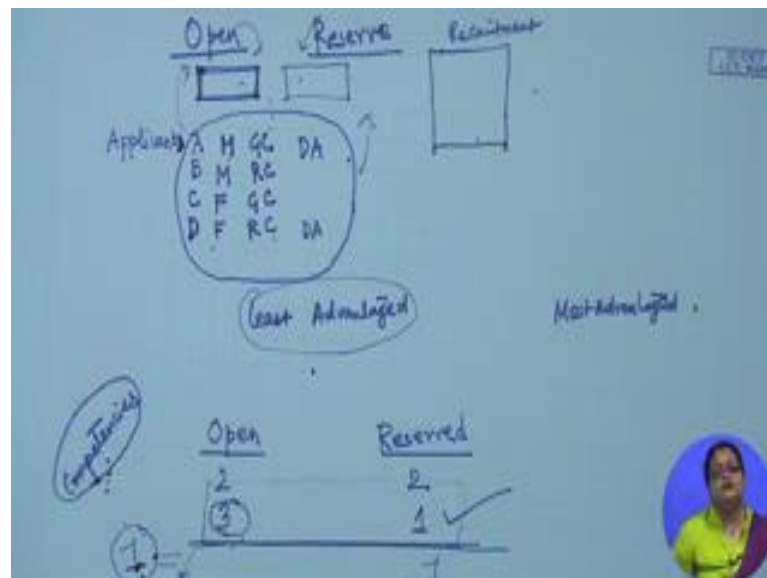 Open Reserve Recruitment
Applicants A M GC DA
B M RC
C F GC
D F RC DA
Least Advantaged Most Advantaged
Competencies
Open Reserved
2 2
3 1
1 = 1